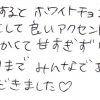 すると ホワイトチョコ
して良いアクセン
かくて甘すぎず
まで みんなで
だきました♡